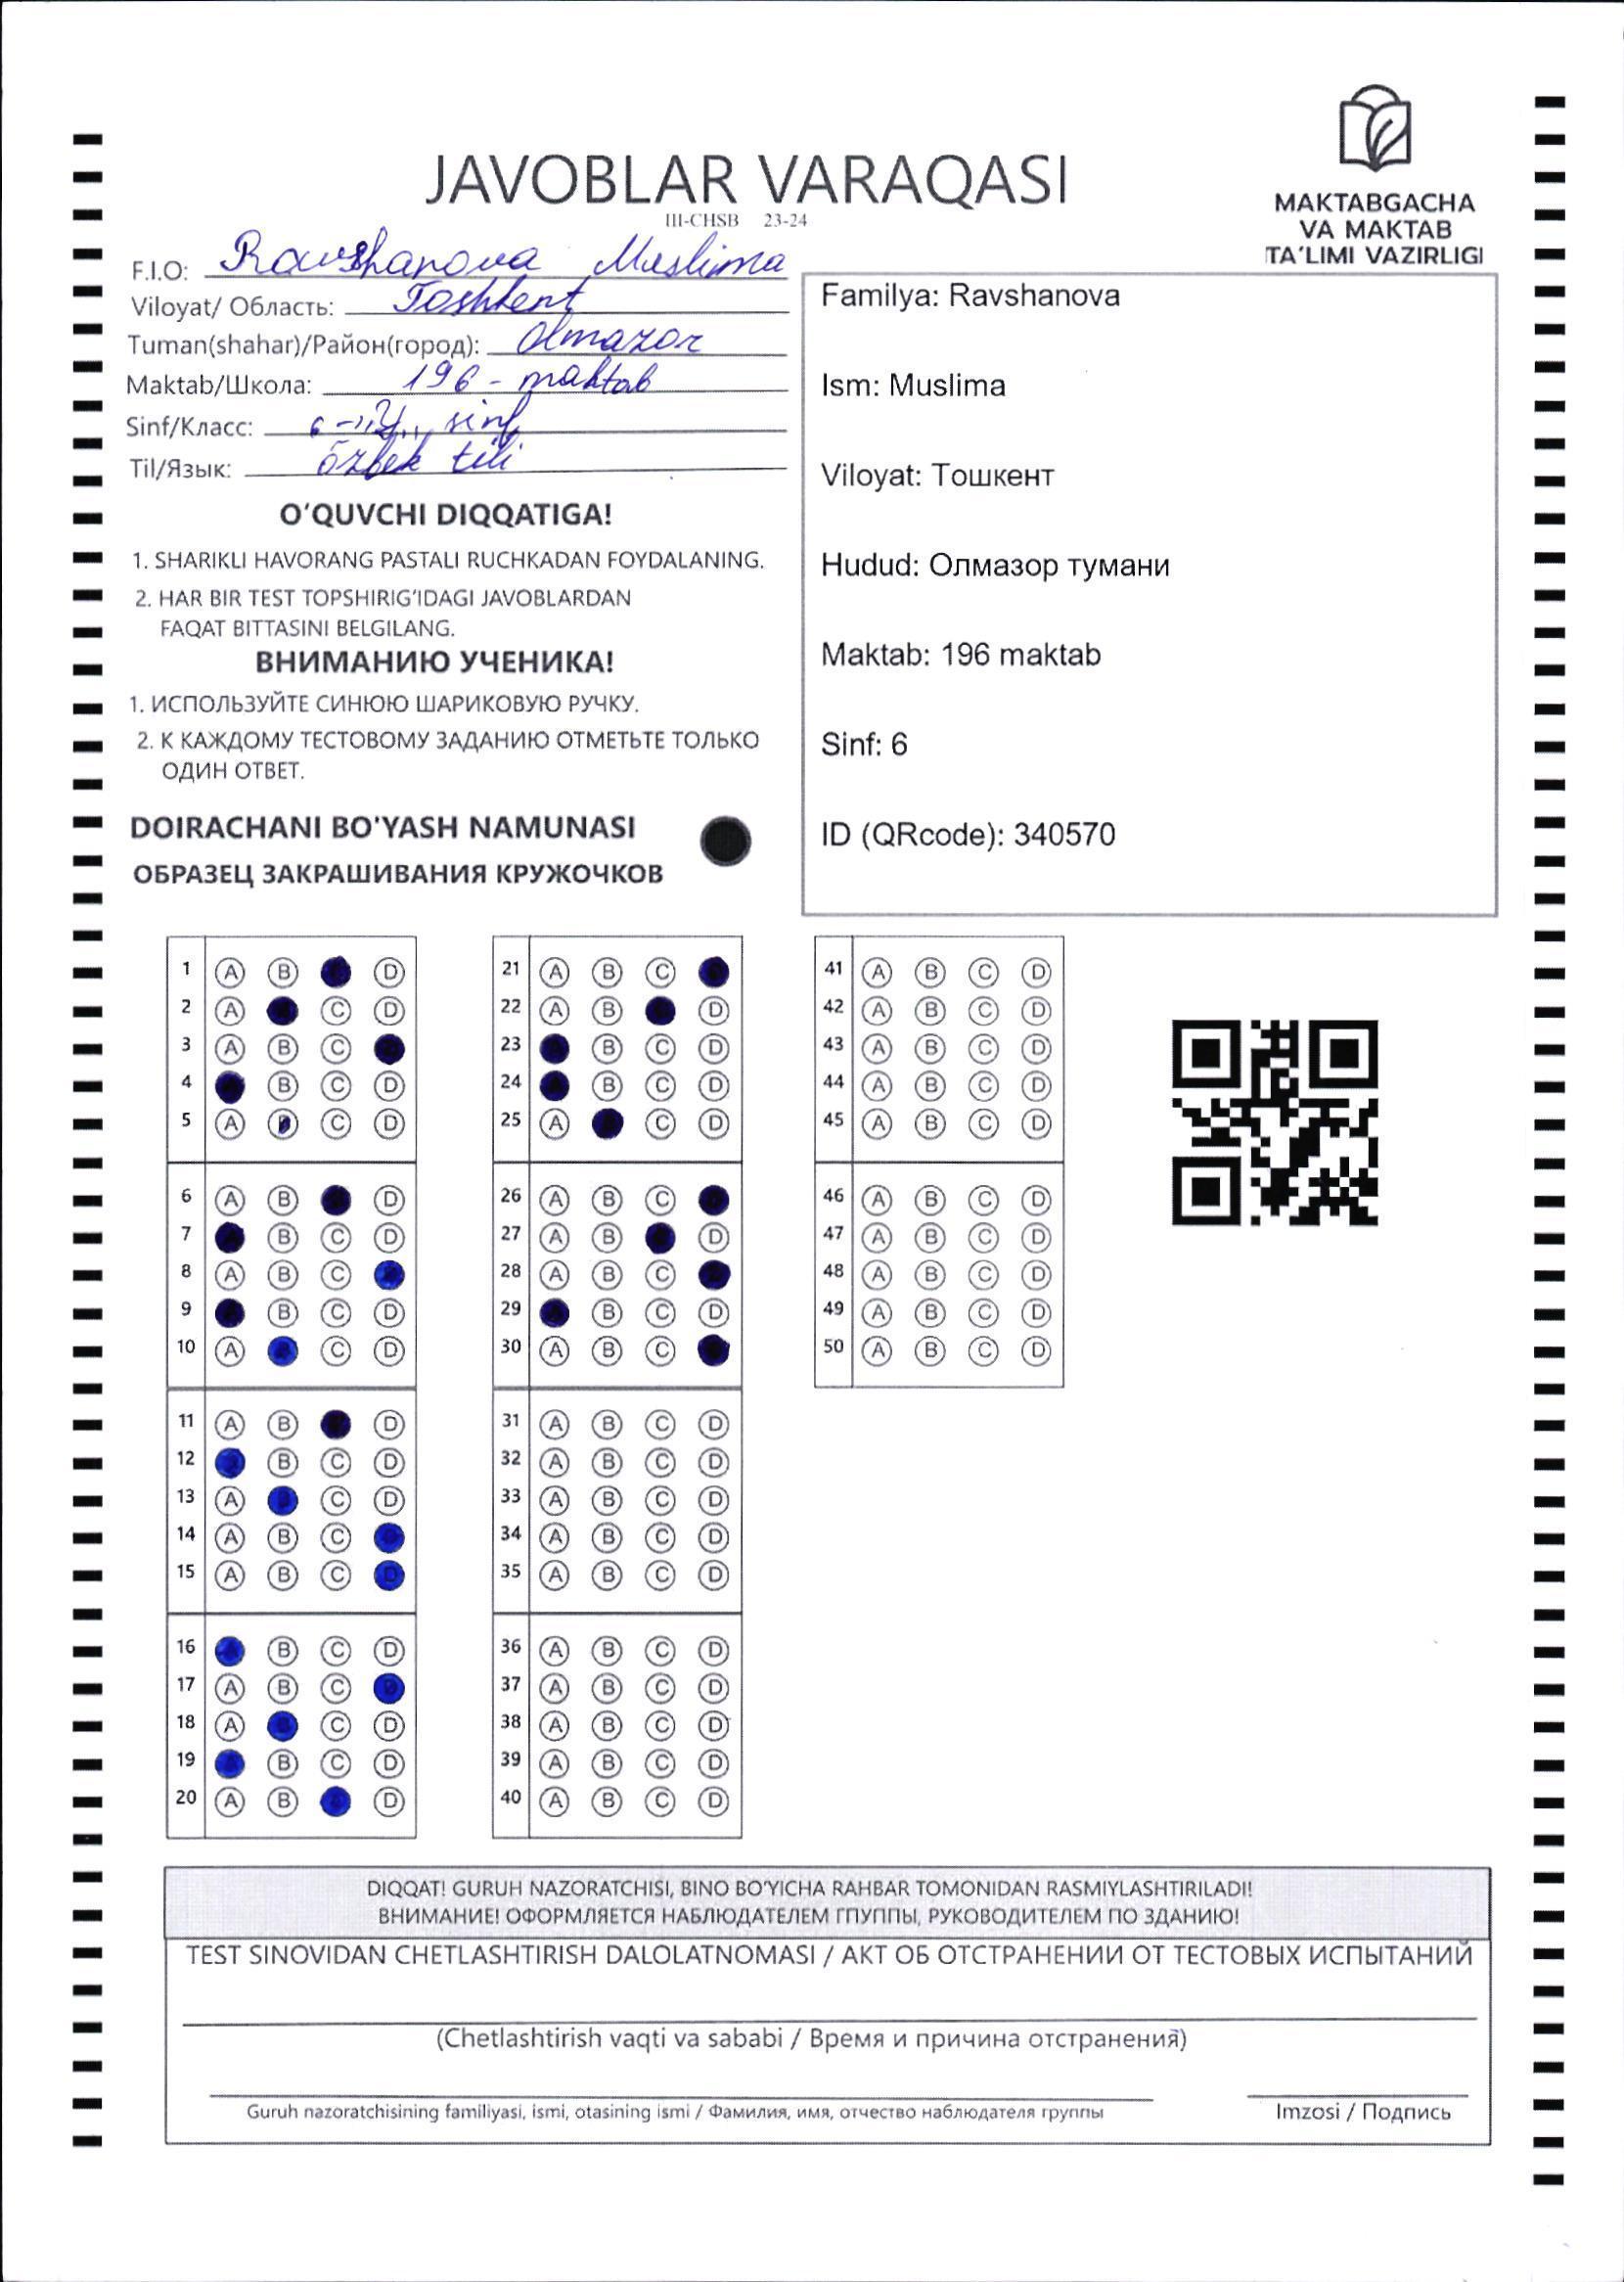 JAVOBLAR VARAQASI
III-CHSB 23-24
MAKTABGACHA
VA MAKTAB
TA'LIMI VAZIRLIGI
F.I.O: Ravshanova Muslima
Viloyat/ Область: Toshkent
Tuman(shahar)/Район(город): Olmazor
Maktab/Школа: 196 - maktab
Sinf/Класс: 6 - sinf
Til/Язык: õzbek tili
O'QUVCHI DIQQATIGA!
1. SHARIKLI HAVORANG PASTALI RUCHKADAN FOYDALANING.
2. HAR BIR TEST TOPSHIRIG'IDAGI JAVOBLARDAN
FAQAT BITTASINI BELGILANG.
ВНИМАНИЮ УЧЕНИКА!
1. ИСПОЛЬЗУЙТЕ СИНЮЮ ШАРИКОВУЮ РУЧКУ.
2. К КАЖДОМУ ТЕСТОВОМУ ЗАДАНИЮ ОТМЕТЬТЕ ТОЛЬКО
ОДИН ОТВЕТ.
DOIRACHANI BO'YASH NAMUNASI
ОБРАЗЕЦ ЗАКРАШИВАНИЯ КРУЖОЧКОВ
Familya: Ravshanova
Ism: Muslima
Viloyat: Тошкент
Hudud: Олмазор тумани
Maktab: 196 maktab
Sinf: 6
ID (QRcode): 340570
1 A B D
2 A C D
3 A B C
4 B C D
5 A B C D
6 A B D
7 B C D
8 A B C
9 B C D
10 A C D
11 A B D
12 B C D
13 A C D
14 A B C
15 A B C D
16 B C D
17 A B C
18 A C D
19 B C D
20 A B D
21 A B C
22 A B D
23 B C D
24 B C D
25 A C D
26 A B C
27 A B D
28 A B C
29 B C D
30 A B C
31 A B C D
32 A B C D
33 A B C D
34 A B C D
35 A B C D
36 A B C D
37 A B C D
38 A B C D
39 A B C D
40 A B C D
41 A B C D
42 A B C D
43 A B C D
44 A B C D
45 A B C D
46 A B C D
47 A B C D
48 A B C D
49 A B C D
50 A B C D
DIQQAT! GURUH NAZORATCHISI, BINO BO'YICHA RAHBAR TOMONIDAN RASMIYLASHTIRILADI!
ВНИМАНИЕ! ОФОРМЛЯЕТСЯ НАБЛЮДАТЕЛЕМ ГПУППЫ, РУКОВОДИТЕЛЕМ ПО ЗДАНИЮ!
TEST SINOVIDAN CHETLASHTIRISH DALOLATNOMASI / АКТ ОБ ОТСТРАНЕНИИ ОТ ТЕСТОВЫХ ИСПЫТАНИЙ
(Chetlashtirish vaqti va sababi / Время и причина отстранения)
Guruh nazoratchisining familiyasi, ismi, otasining ismi / Фамилия, имя, отчество наблюдателя группы
Imzosi / Подпись